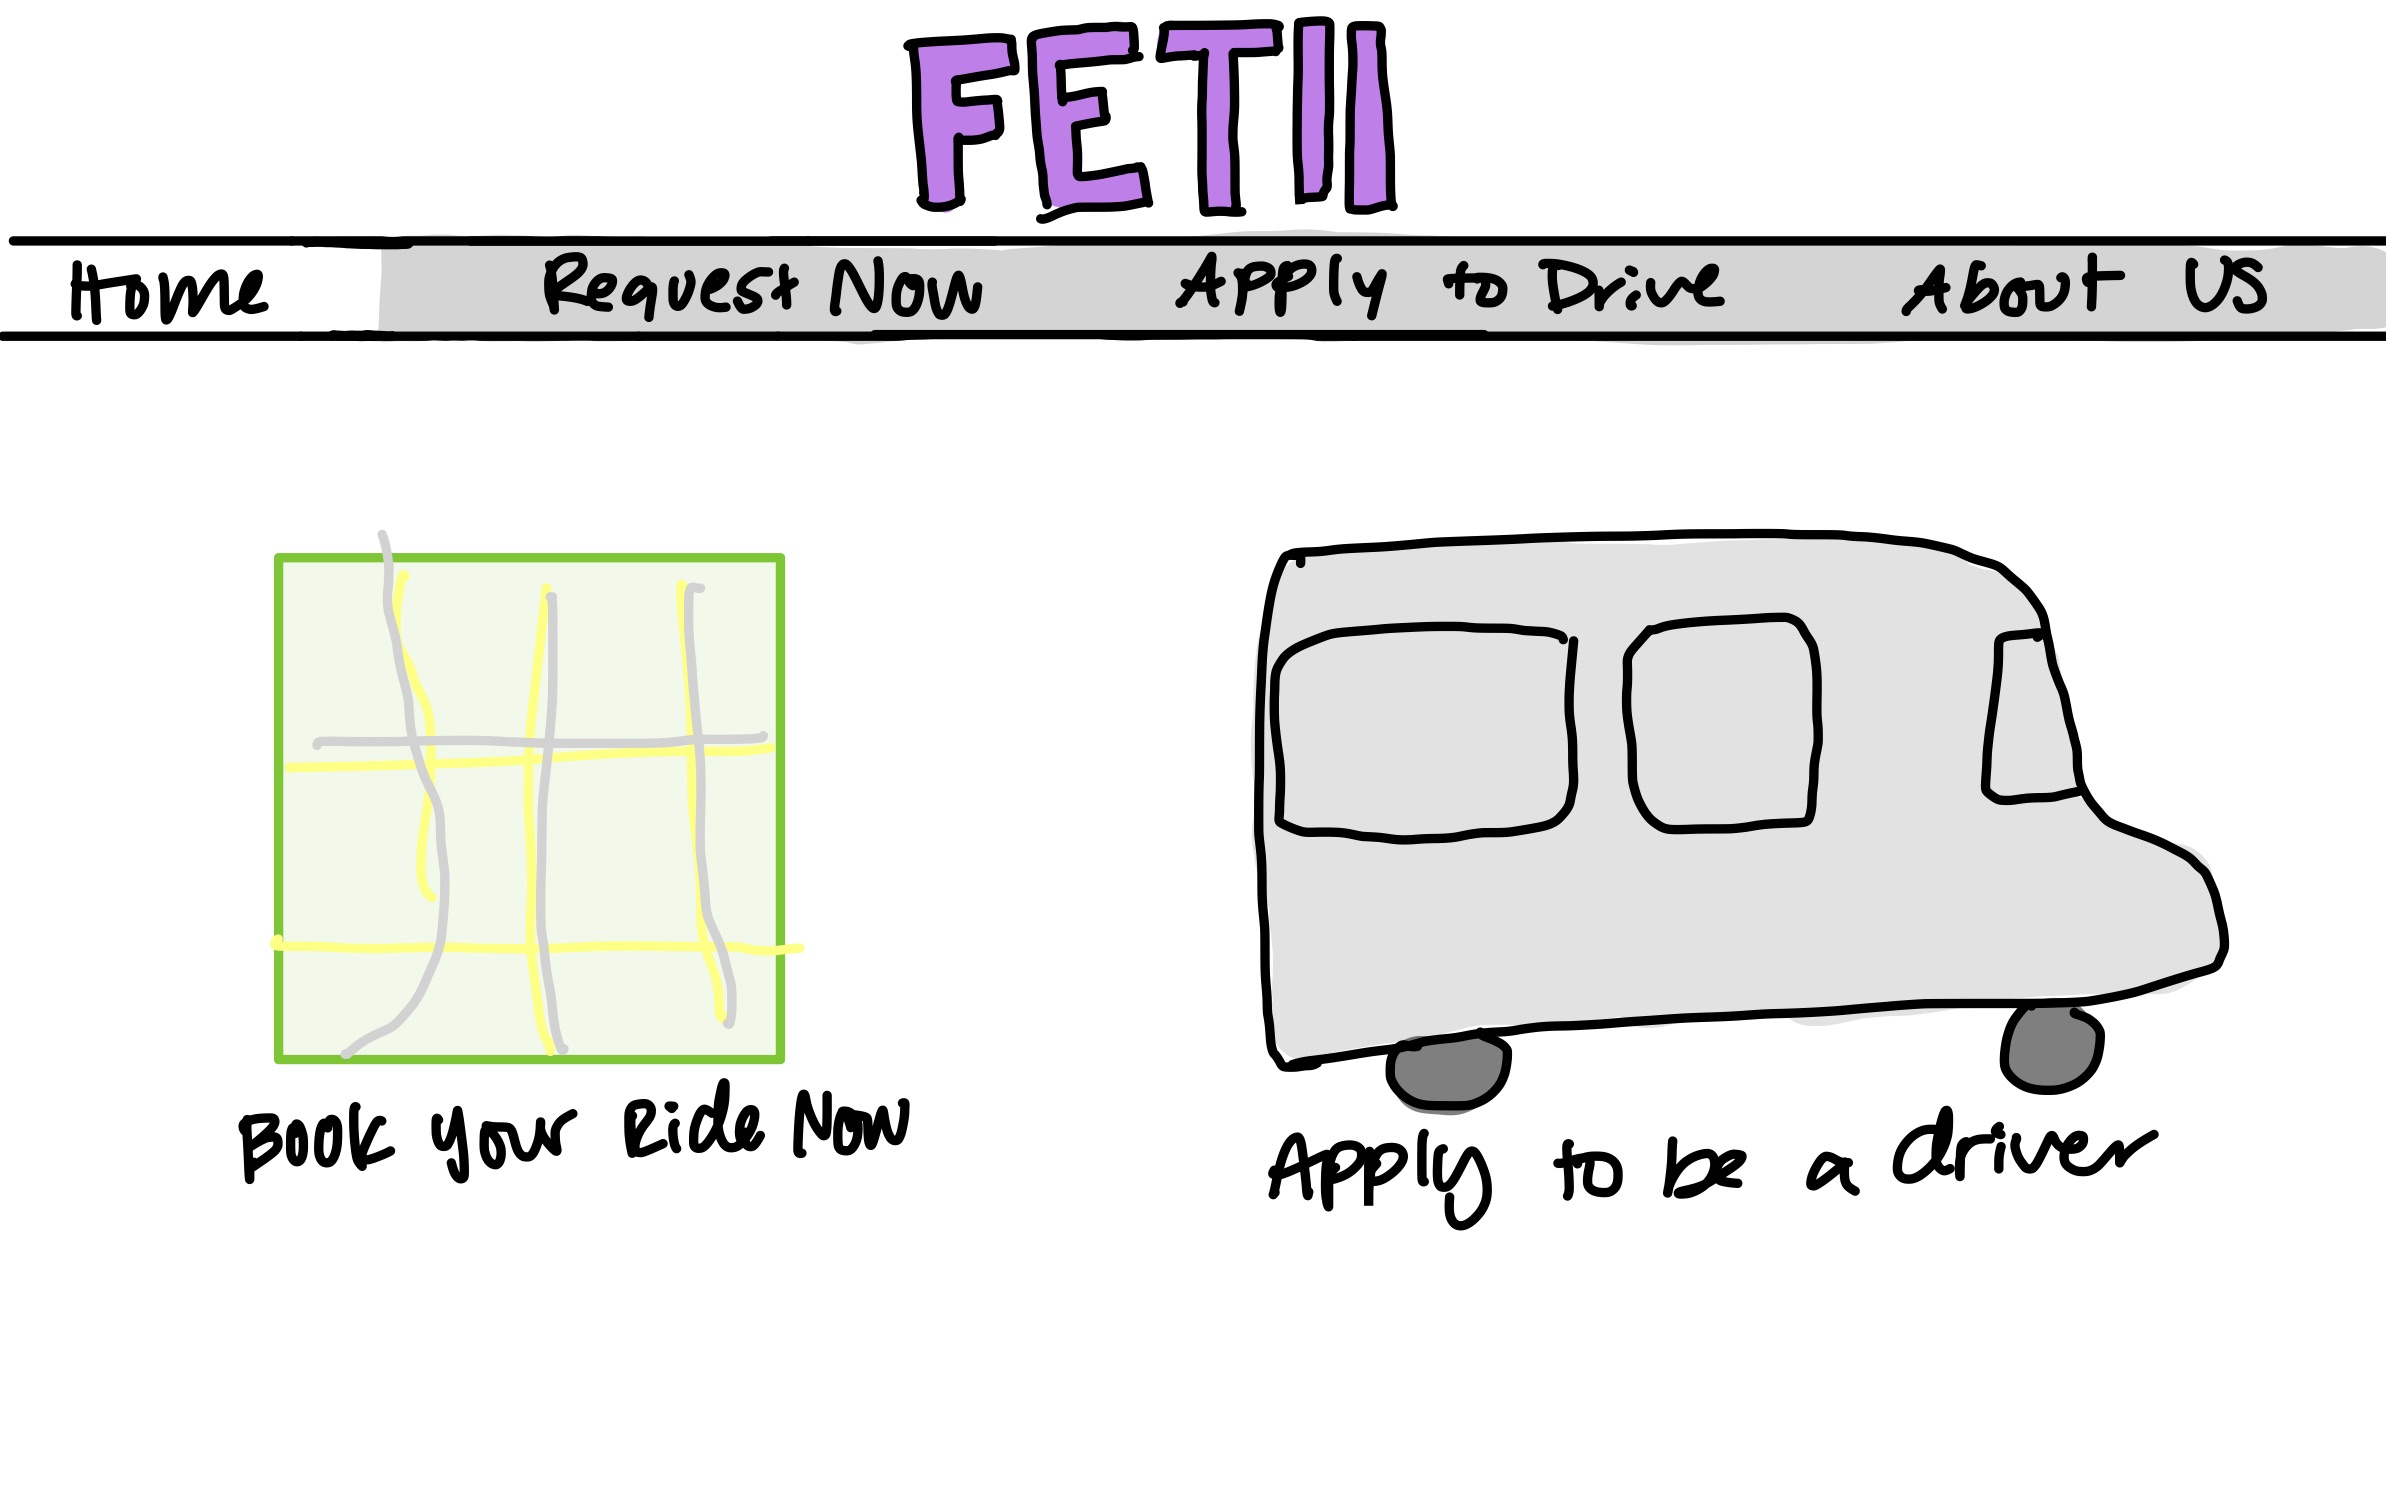 FETII
Home Request Now Apply to Drive About Us
Book your Ride Now
Apply to be a driver